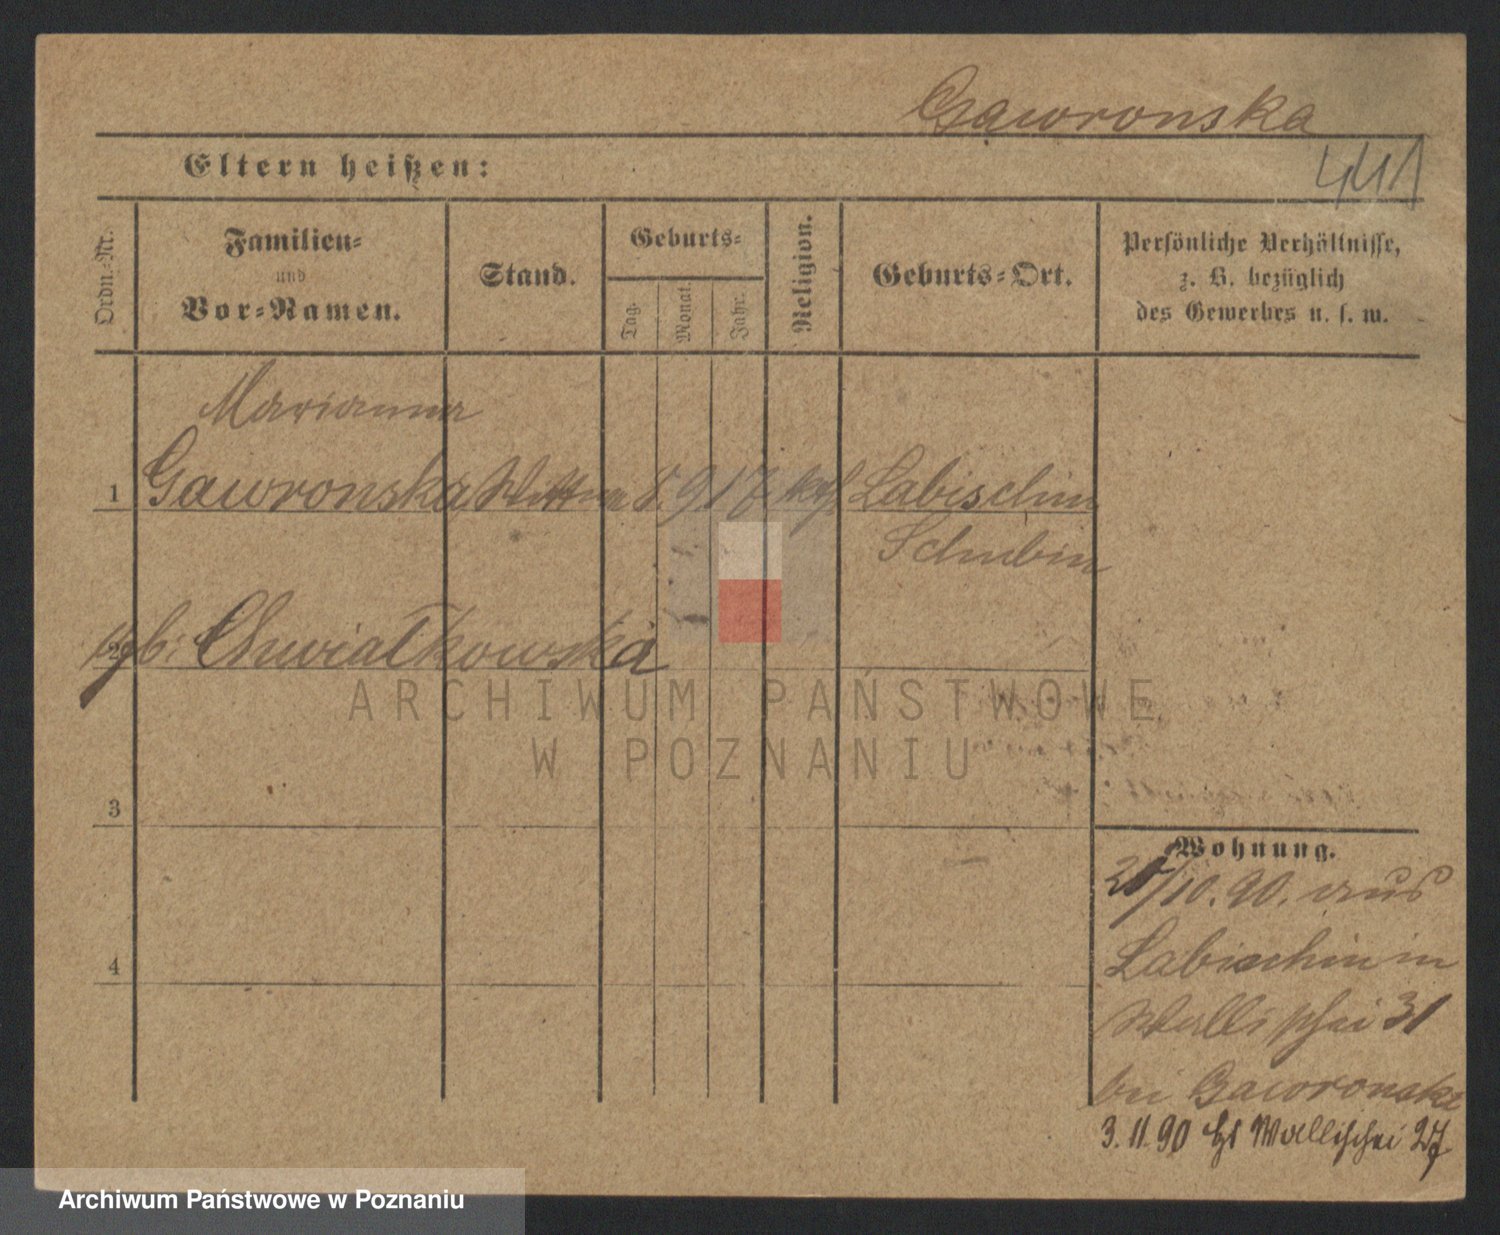 Gaworonska
441
Eltern heißen:
Ordn.-Nr.
Familien-
und
Vor-Namen.
Stand.
Geburts-
Tag.
Monat.
Jahr.
Religion.
Geburts-Ort.
Persönliche Verhältnisse,
z. B. bezüglich
des Gewerbes u. s. w.
Marianna
1 Gaworonska Wittwe 8. 9 17 kth Labischin
Schubin
2 gb: Chwialkowska
ARCHIWUM PAŃSTWOWE
W POZNANIU
3
4
Wohnung.
/10. 90. aus
Labischin in
Wallischei 31
bei Gaworonska
3. 11. 90 Wallischei 27
Archiwum Państwowe w Poznaniu